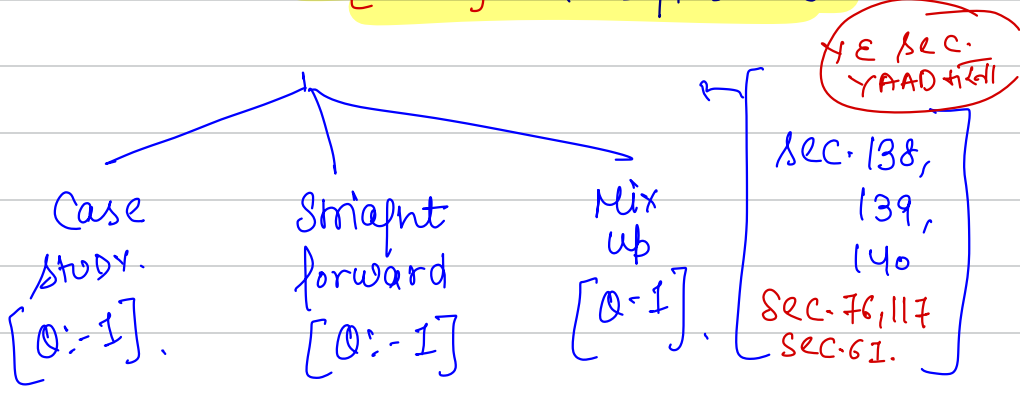 YE Sec.
YAAD करना
Case
study.
[Q:-1].
Striaght
forward
[Q:-1]
Mix
up
[Q-1].
Sec. 138,
139,
140
Sec. 76, 117
Sec. 61.